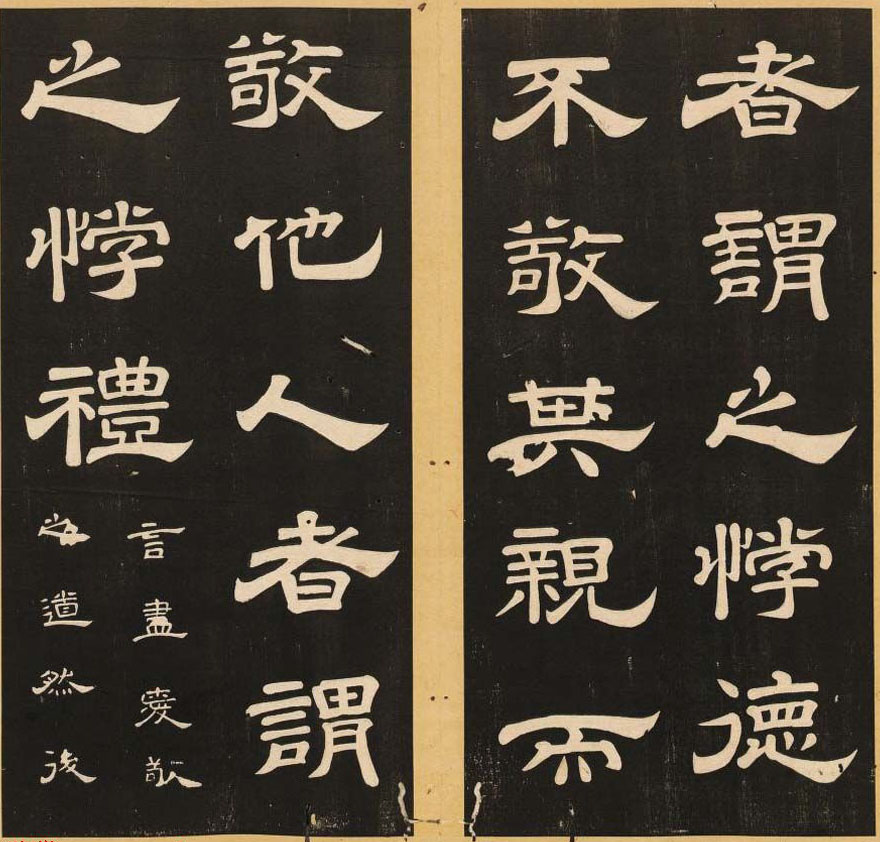 者謂之悖德
不敬其親而
敬他人者謂
之悖禮
言盡愛敬
之道然後